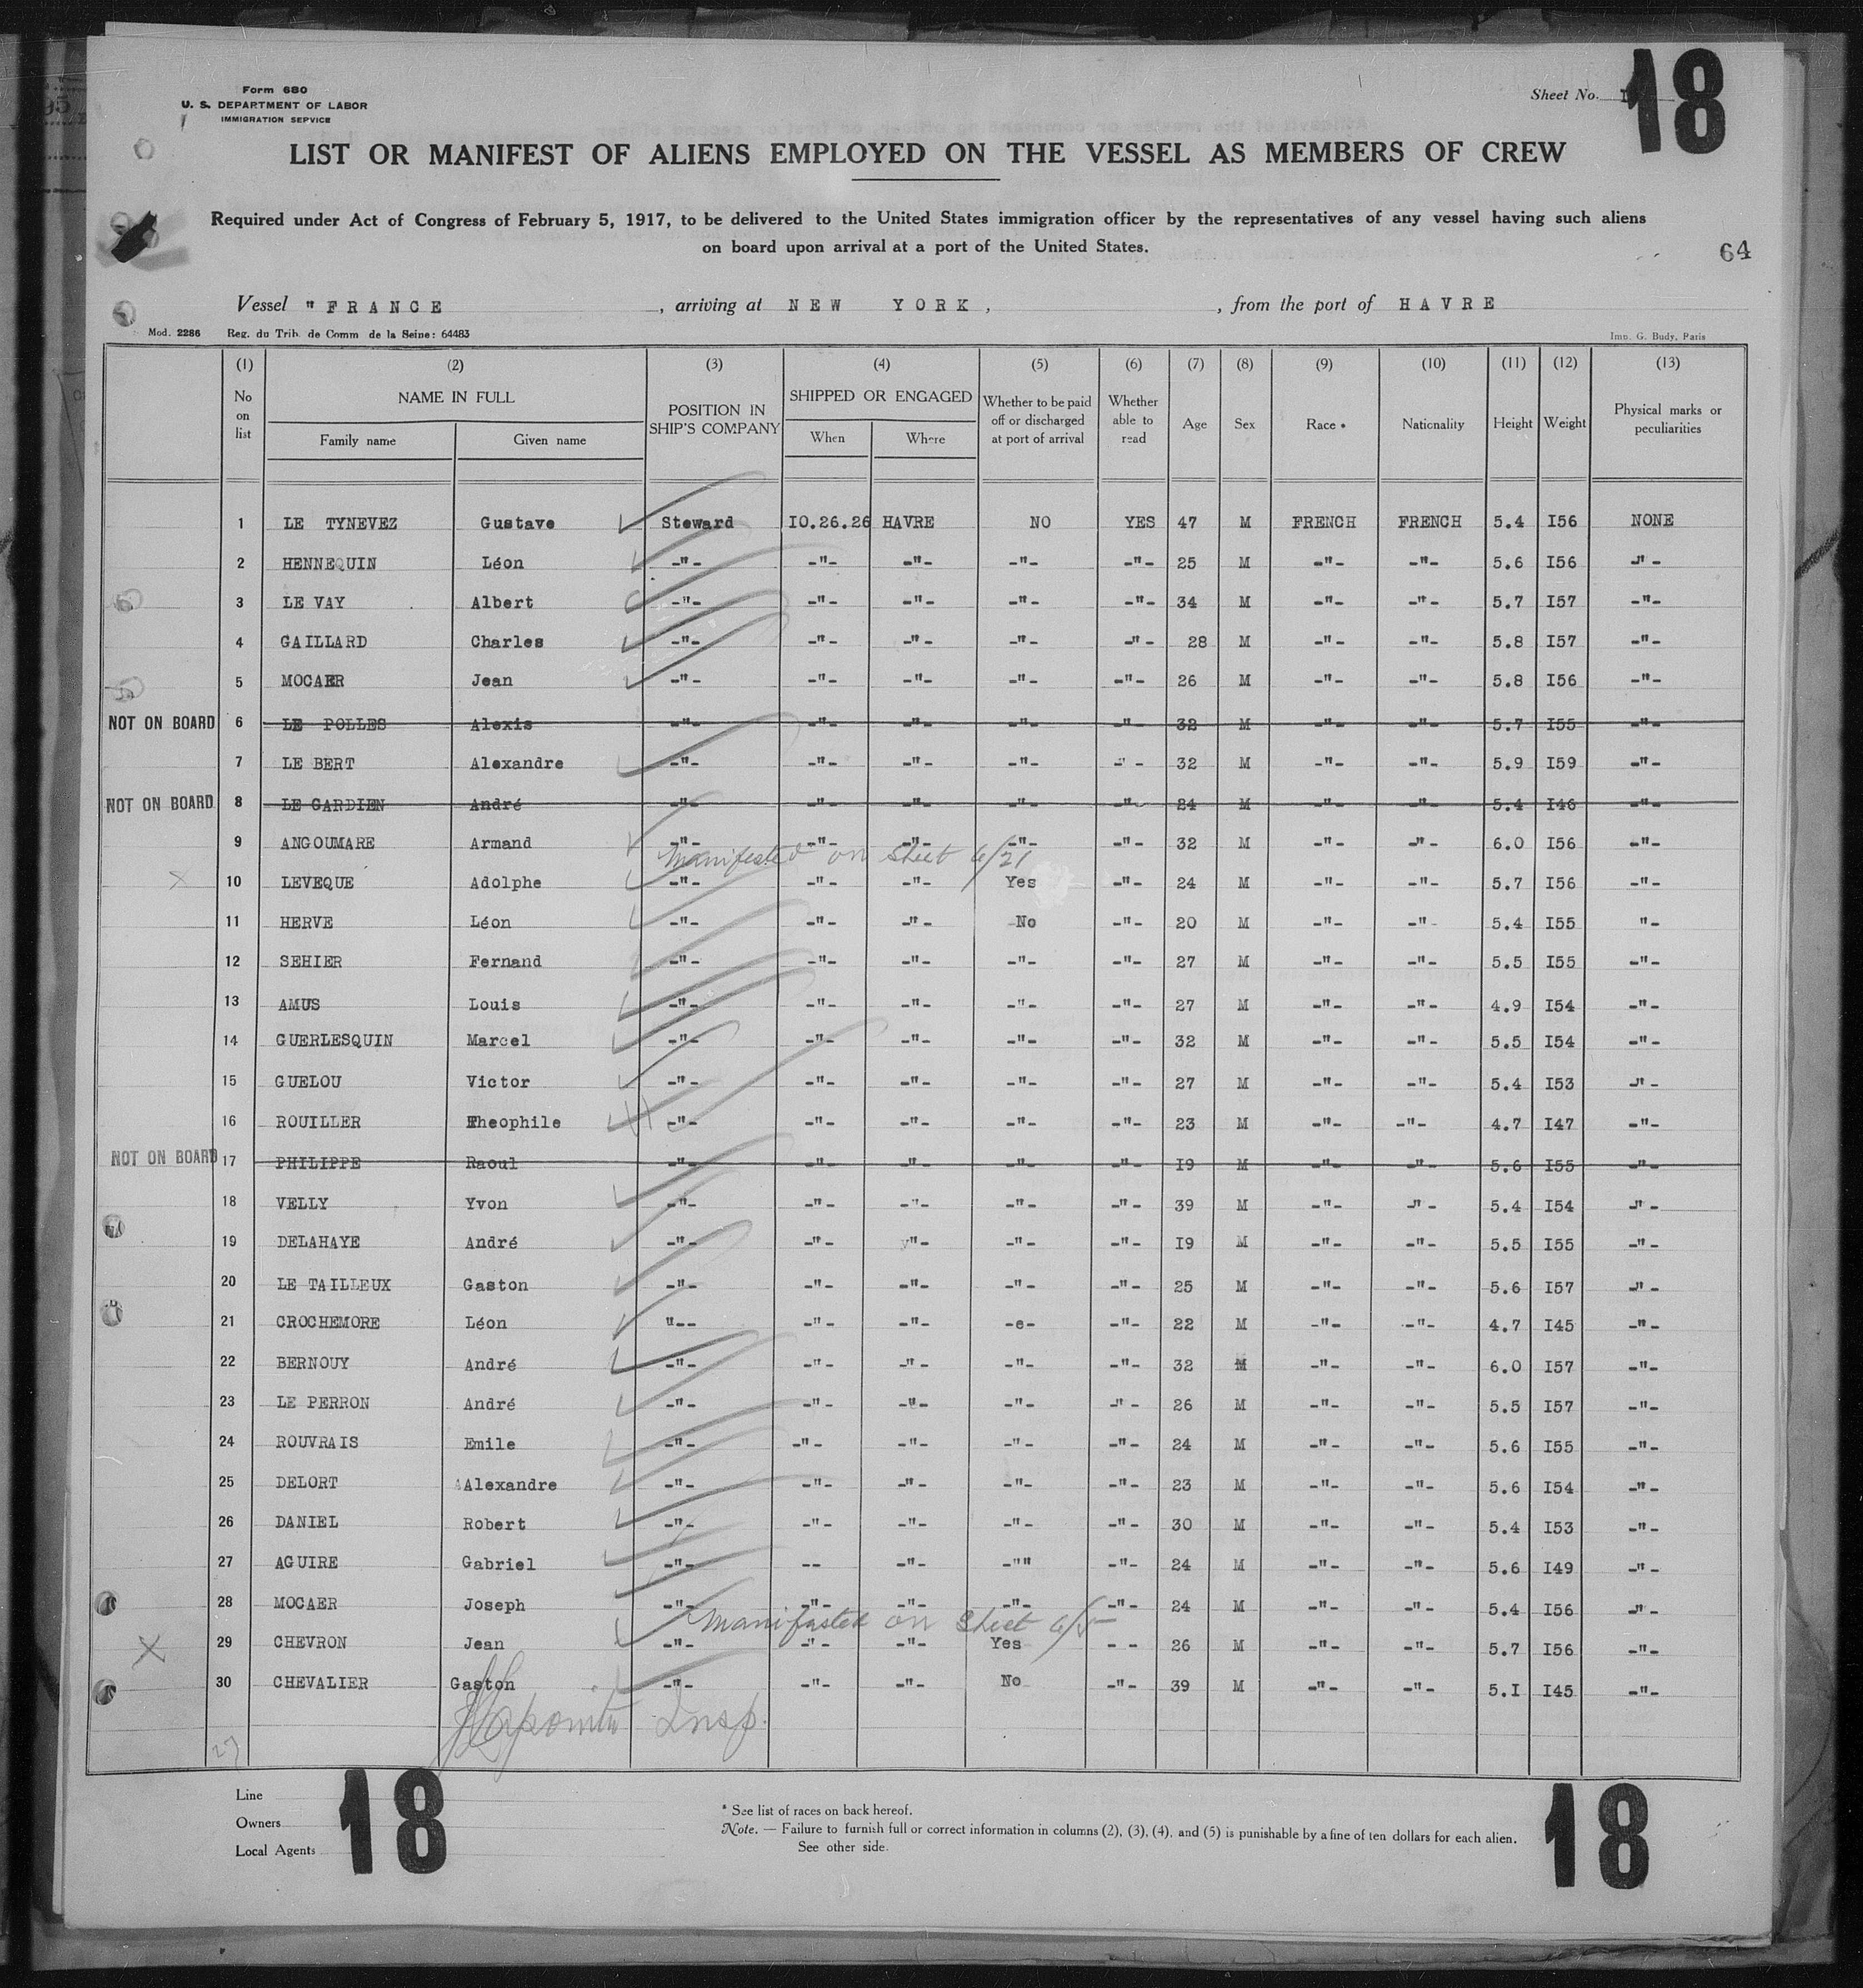 Form 680
U. S. DEPARTMENT OF LABOR
IMMIGRATION SERVICE
Sheet No.
18
LIST OR MANIFEST OF ALIENS EMPLOYED ON THE VESSEL AS MEMBERS OF CREW
Required under Act of Congress of February 5, 1917, to be delivered to the United States immigration officer by the representatives of any vessel having such aliens
on board upon arrival at a port of the United States.
64
Vessel "FRANCE , arriving at NEW YORK, , from the port of HAVRE
Mod. 2286 Reg. du Trib. de Comm de la Seine: 64483 Imp. G. Budy, Paris
(1) (2) (3) (4) (5) (6) (7) (8) (9) (10) (11) (12) (13)
No on list NAME IN FULL Family name Given name POSITION IN SHIP'S COMPANY SHIPPED OR ENGAGED When Where Whether to be paid off or discharged at port of arrival Whether able to read Age Sex Race * Nationality Height Weight Physical marks or peculiarities
1 LE TYNEVEZ Gustave Steward IO.26.26 HAVRE NO YES 47 M FRENCH FRENCH 5.4 I56 NONE
2 HENNEQUIN Léon -"- -"- -"- -"- -"- 25 M -"- -"- 5.6 I56 -"-
3 LE VAY Albert -"- -"- -"- -"- -"- 34 M -"- -"- 5.7 I57 -"-
4 GAILLARD Charles -"- -"- -"- -"- -"- 28 M -"- -"- 5.8 I57 -"-
5 MOCAER Jean -"- -"- -"- -"- -"- 26 M -"- -"- 5.8 I56 -"-
NOT ON BOARD 6 LE POLLES Alexis -"- -"- -"- -"- -"- 32 M -"- -"- 5.7 I55 -"-
7 LE BERT Alexandre -"- -"- -"- -"- -"- 32 M -"- -"- 5.9 I59 -"-
NOT ON BOARD 8 LE GARDIEN André -"- -"- -"- -"- -"- 24 M -"- -"- 5.4 I46 -"-
9 ANGOUMARE Armand -"- -"- -"- -"- -"- 32 M -"- -"- 6.0 I56 -"-
Manifested on Sheet 6/21
X 10 LEVEQUE Adolphe -"- -"- -"- Yes -"- 24 M -"- -"- 5.7 I56 -"-
11 HERVE Léon -"- -"- -"- No -"- 20 M -"- -"- 5.4 I55 "-
12 SEHIER Fernand -"- -"- -"- -"- -"- 27 M -"- -"- 5.5 I55 -"-
13 AMUS Louis -"- -"- -"- -"- -"- 27 M -"- -"- 4.9 I54 -"-
14 GUERLESQUIN Marcel -"- -"- -"- -"- -"- 32 M -"- -"- 5.5 I54 -"-
15 GUELOU Victor -"- -"- -"- -"- -"- 27 M -"- -"- 5.4 I53 -"-
16 ROUILLER Theophile -"- -"- -"- -"- -"- 23 M -"- -"- 4.7 I47 -"-
NOT ON BOARD 17 PHILIPPE Raoul -"- -"- -"- -"- -"- I9 M -"- -"- 5.6 I55 -"-
18 VELLY Yvon -"- -"- -"- -"- -"- 39 M -"- -"- 5.4 I54 -"-
19 DELAHAYE André -"- -"- -"- -"- -"- I9 M -"- -"- 5.5 I55 -"-
20 LE TAILLEUX Gaston -"- -"- -"- -"- -"- 25 M -"- -"- 5.6 I57 -"-
21 CROCHEMORE Léon "-- -"- -"- -e- -"- 22 M -"- -"- 4.7 I45 -"-
22 BERNOUY André -"- -"- -"- -"- -"- 32 M -"- -"- 6.0 I57 -"-
23 LE PERRON André -"- -"- -"- -"- -"- 26 M -"- -"- 5.5 I57 -"-
24 ROUVRAIS Emile -"- -"- -"- -"- -"- 24 M -"- -"- 5.6 I55 -"-
25 DELORT Alexandre -"- -"- -"- -"- -"- 23 M -"- -"- 5.6 I54 -"-
26 DANIEL Robert -"- -"- -"- -"- -"- 30 M -"- -"- 5.4 I53 -"-
27 AGUIRE Gabriel -"- -- -"- -"" -"- 24 M -"- -"- 5.6 I49 -"-
28 MOCAER Joseph -"- -"- -"- -"- -"- 24 M -"- -"- 5.4 I56 -"-
Manifested on Sheet 6/5
X 29 CHEVRON Jean -"- -"- -"- Yes - - 26 M -"- -"- 5.7 I56 -"-
30 CHEVALIER Gaston -"- -"- -"- No -"- 39 M -"- -"- 5.I I45 -"-
Insp.
27
Line
Owners
Local Agents
18
* See list of races on back hereof.
Note. — Failure to furnish full or correct information in columns (2), (3), (4), and (5) is punishable by a fine of ten dollars for each alien.
See other side.
18